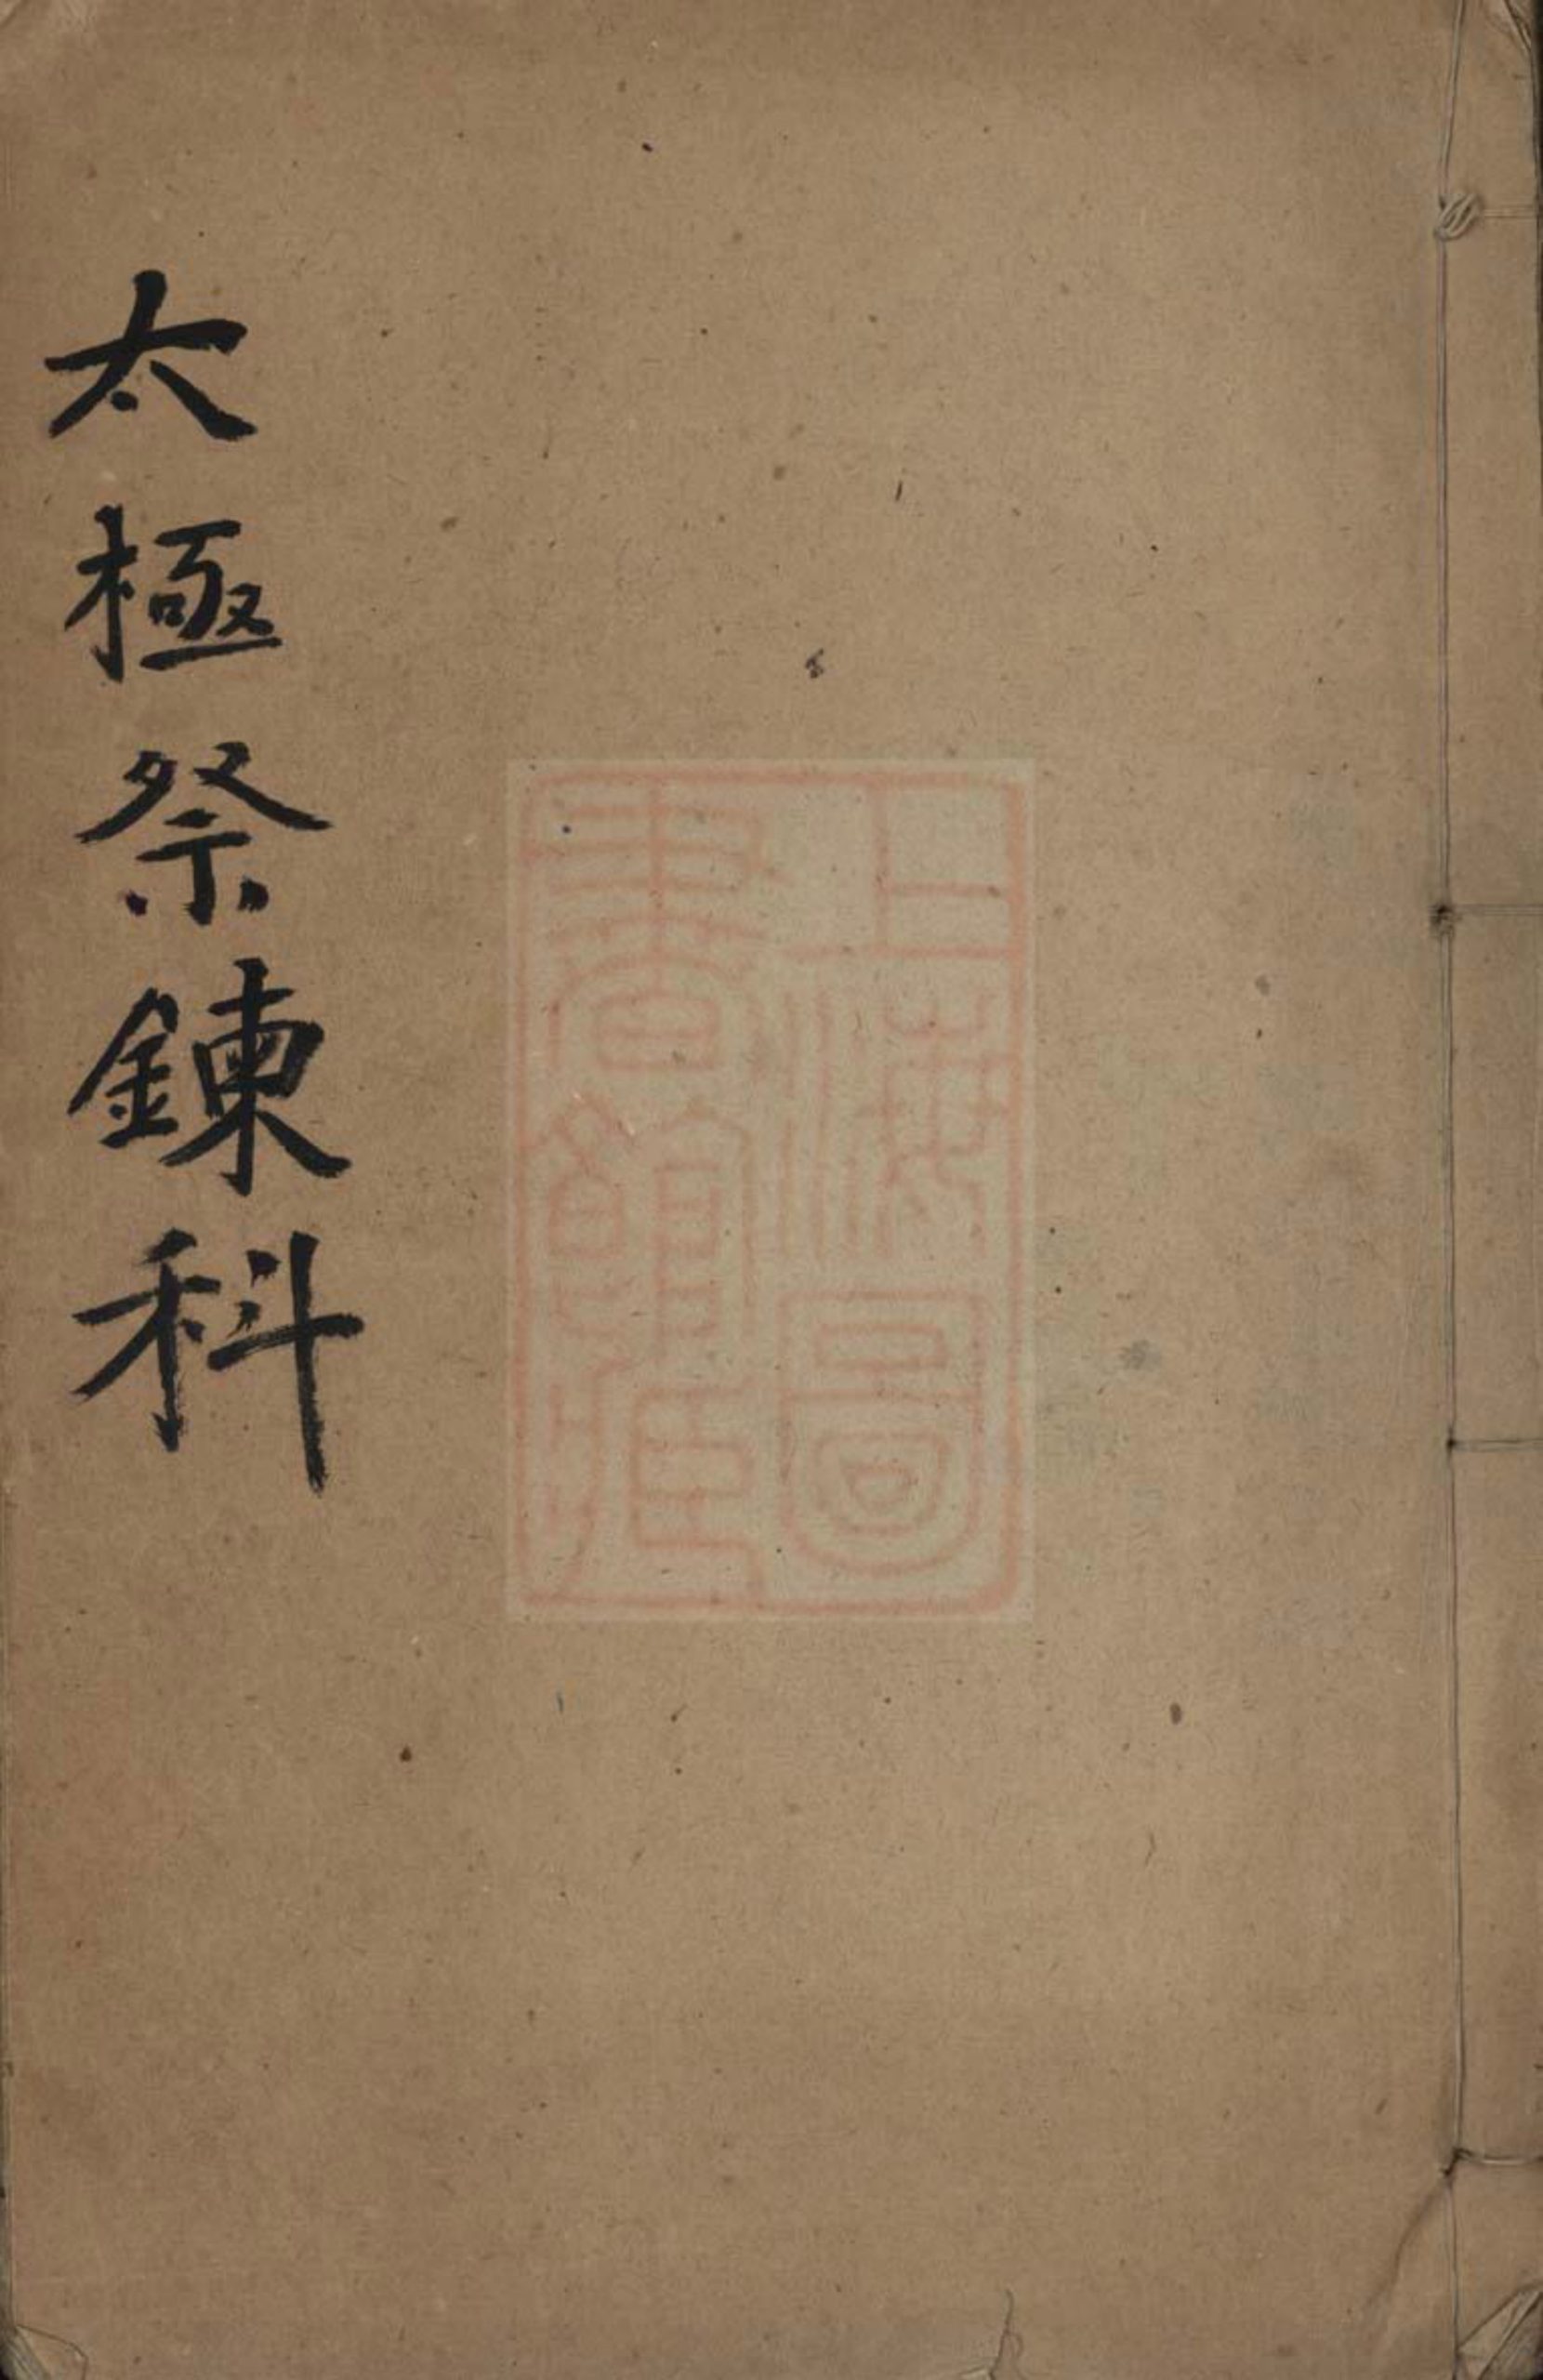 太極祭鍊科
上海圖
書館藏